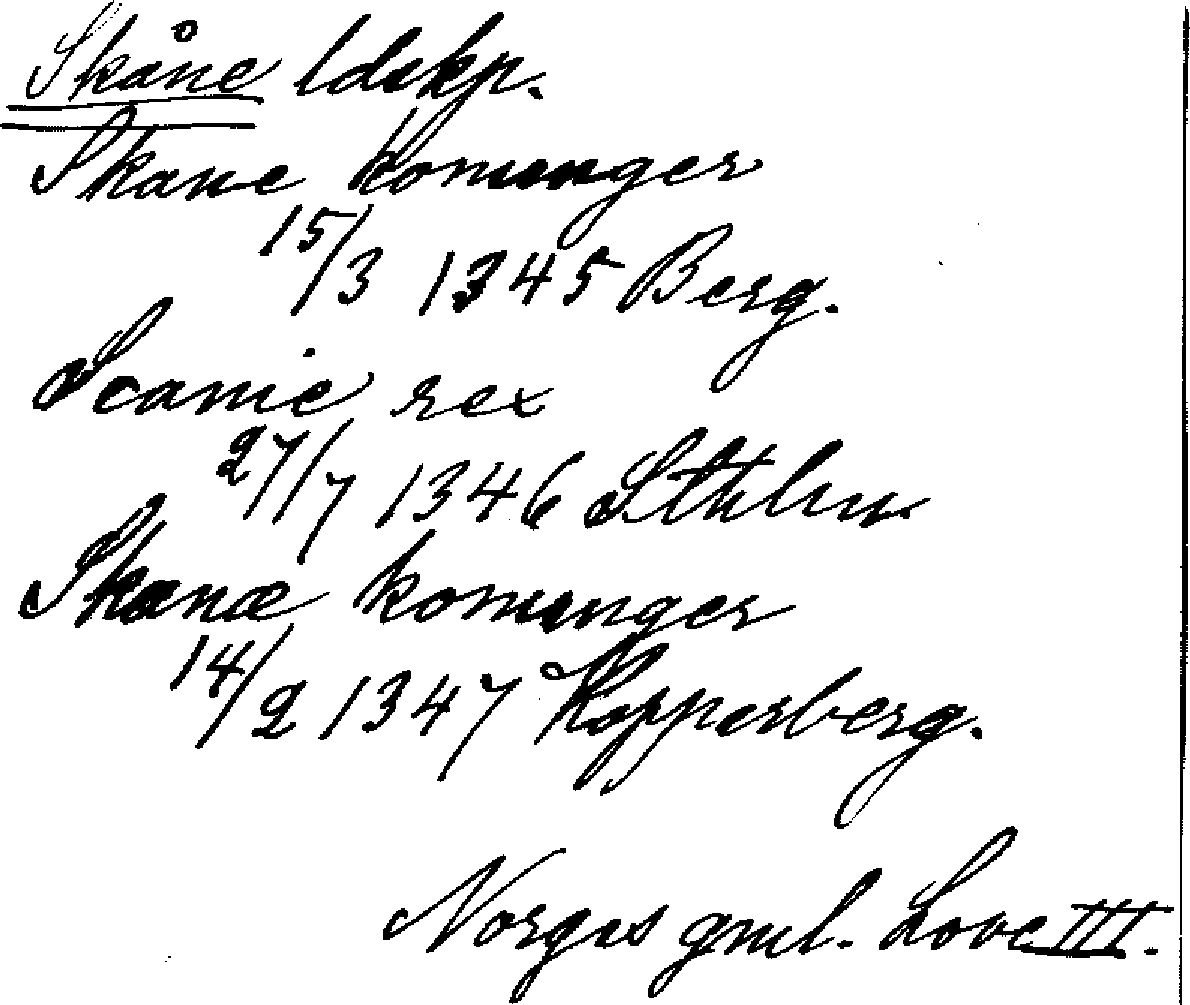 Skåne ldskp.
Skane konunger
15/3 1345 Berg.
Scanie rex
27/7 1346 Sthlm
Skanæ konunger
14/2 1347 Kopparberg.
Norges gml. Love III.